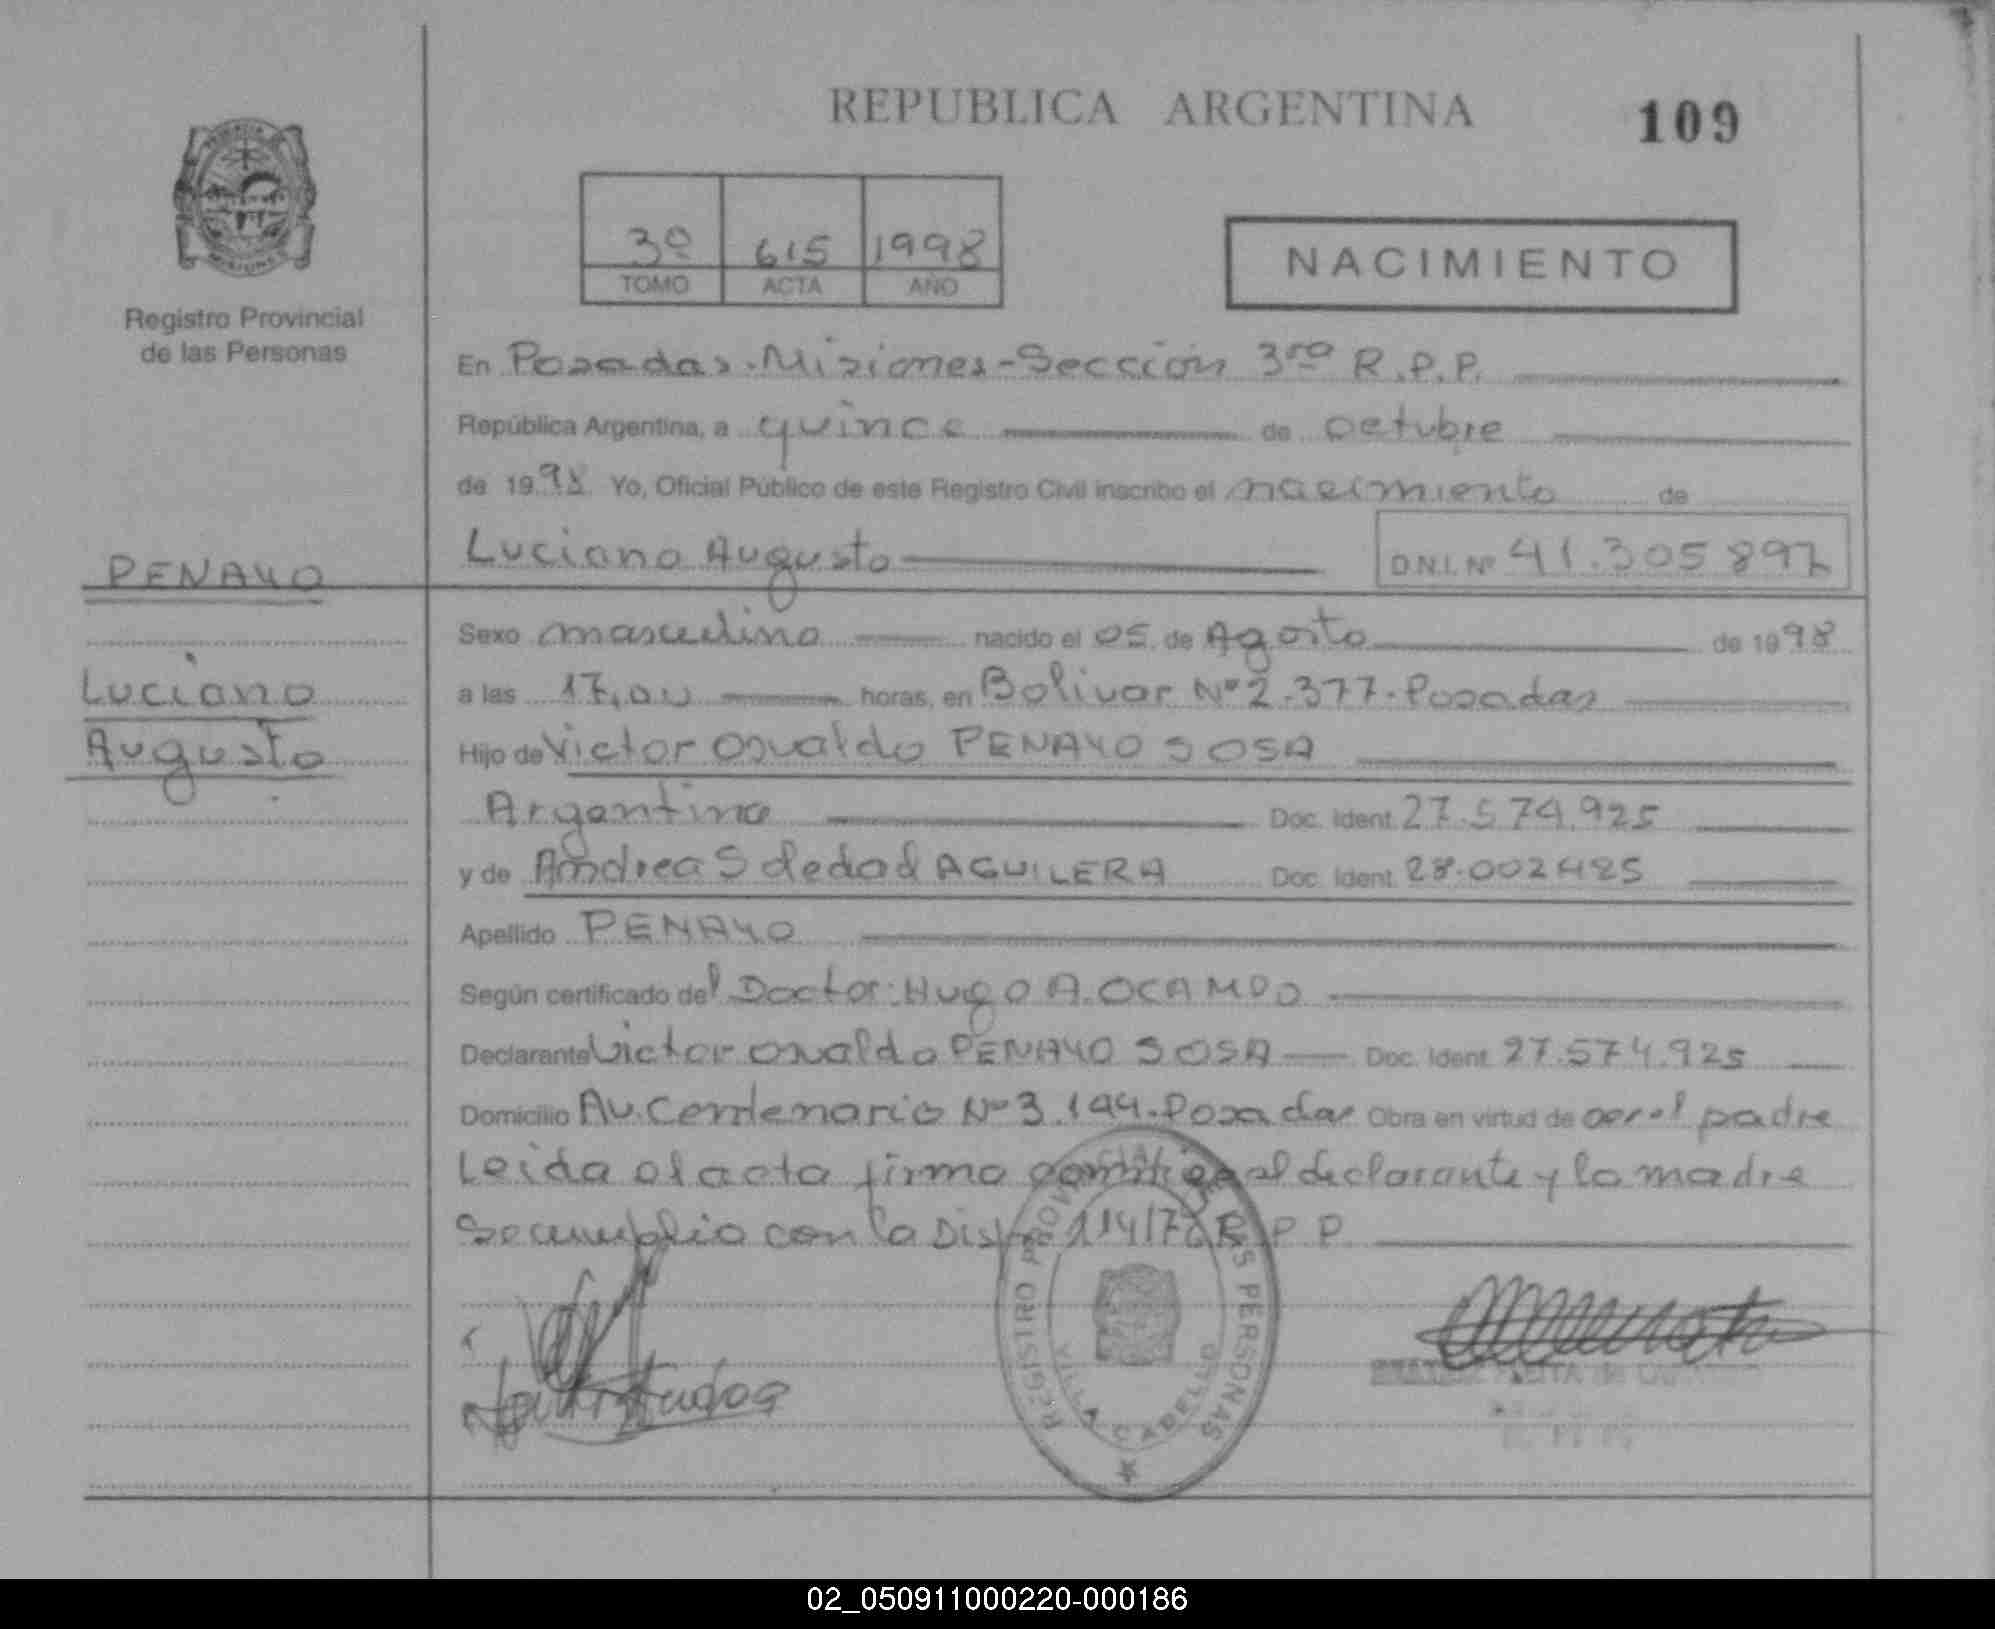 REPUBLICA ARGENTINA
109
3º 615 1998
TOMO ACTA AÑO
NACIMIENTO
Registro Provincial
de las Personas
En Posadas.Misiones-Sección 3ra R.P.P.
República Argentina, a quince de octubre
de 1998 Yo, Oficial Público de este Registro Civil inscribo el nacimiento de
Luciano Augusto D.N.I. Nº 41.305897
PENAYO
Luciano
Augusto
Sexo masculino nacido el 05 de Agosto de 1998
a las 17,00 horas, en Bolivar Nº 2.377.Posadas
Hijo de Victor Osvaldo PENAYO SOSA
Argentino Doc. Ident. 27.574.925
y de Andrea Soledad AGUILERA Doc. Ident. 28.002485
Apellido PENAYO
Según certificado del Doctor: Hugo A. OCAMPO
Declarante Victor Osvaldo PENAYO SOSA Doc. Ident. 27.574.925
Domicilio Av. Centenario Nº 3.144.Posadas Obra en virtud de ser el padre
Leida el acta firma conmigo el declarante y la madre
Se cumplio con la Disp. 114/78 R P P
REGISTRO PROVINCIAL DE LAS PERSONAS
VILLA CABELLO
02_050911000220-000186